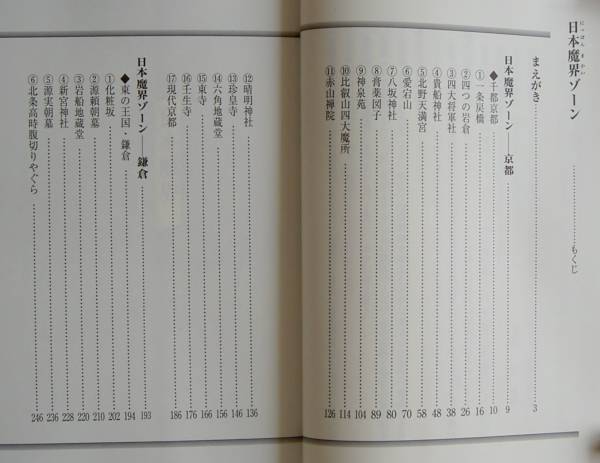 にっぽん まかい
日本魔界ゾーン……………もくじ
まえがき……………3
日本魔界ゾーン――京都……………9
◆千都京都……………10
①一条戻橋……………16
②四つの岩倉……………26
③四大将軍社……………38
④貴船神社……………48
⑤北野天満宮……………58
⑥愛宕山……………70
⑦八坂神社……………80
⑧膏薬図子……………89
⑨神泉苑……………104
⑩比叡山四大魔所……………114
⑪赤山禅院……………126
⑫晴明神社……………136
⑬珍皇寺……………146
⑭六角地蔵堂……………156
⑮東寺……………166
⑯壬生寺……………176
⑰現代京都……………186
日本魔界ゾーン――鎌倉……………193
◆東の王国・鎌倉……………194
①化粧坂……………202
②源頼朝墓……………210
③岩船地蔵堂……………220
④新宮神社……………228
⑤源実朝墓……………236
⑥北条高時腹切りやぐら……………246